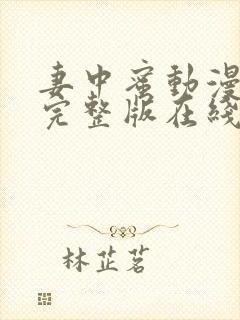 妻中蜜動漫
完整版在綫
林芷茗